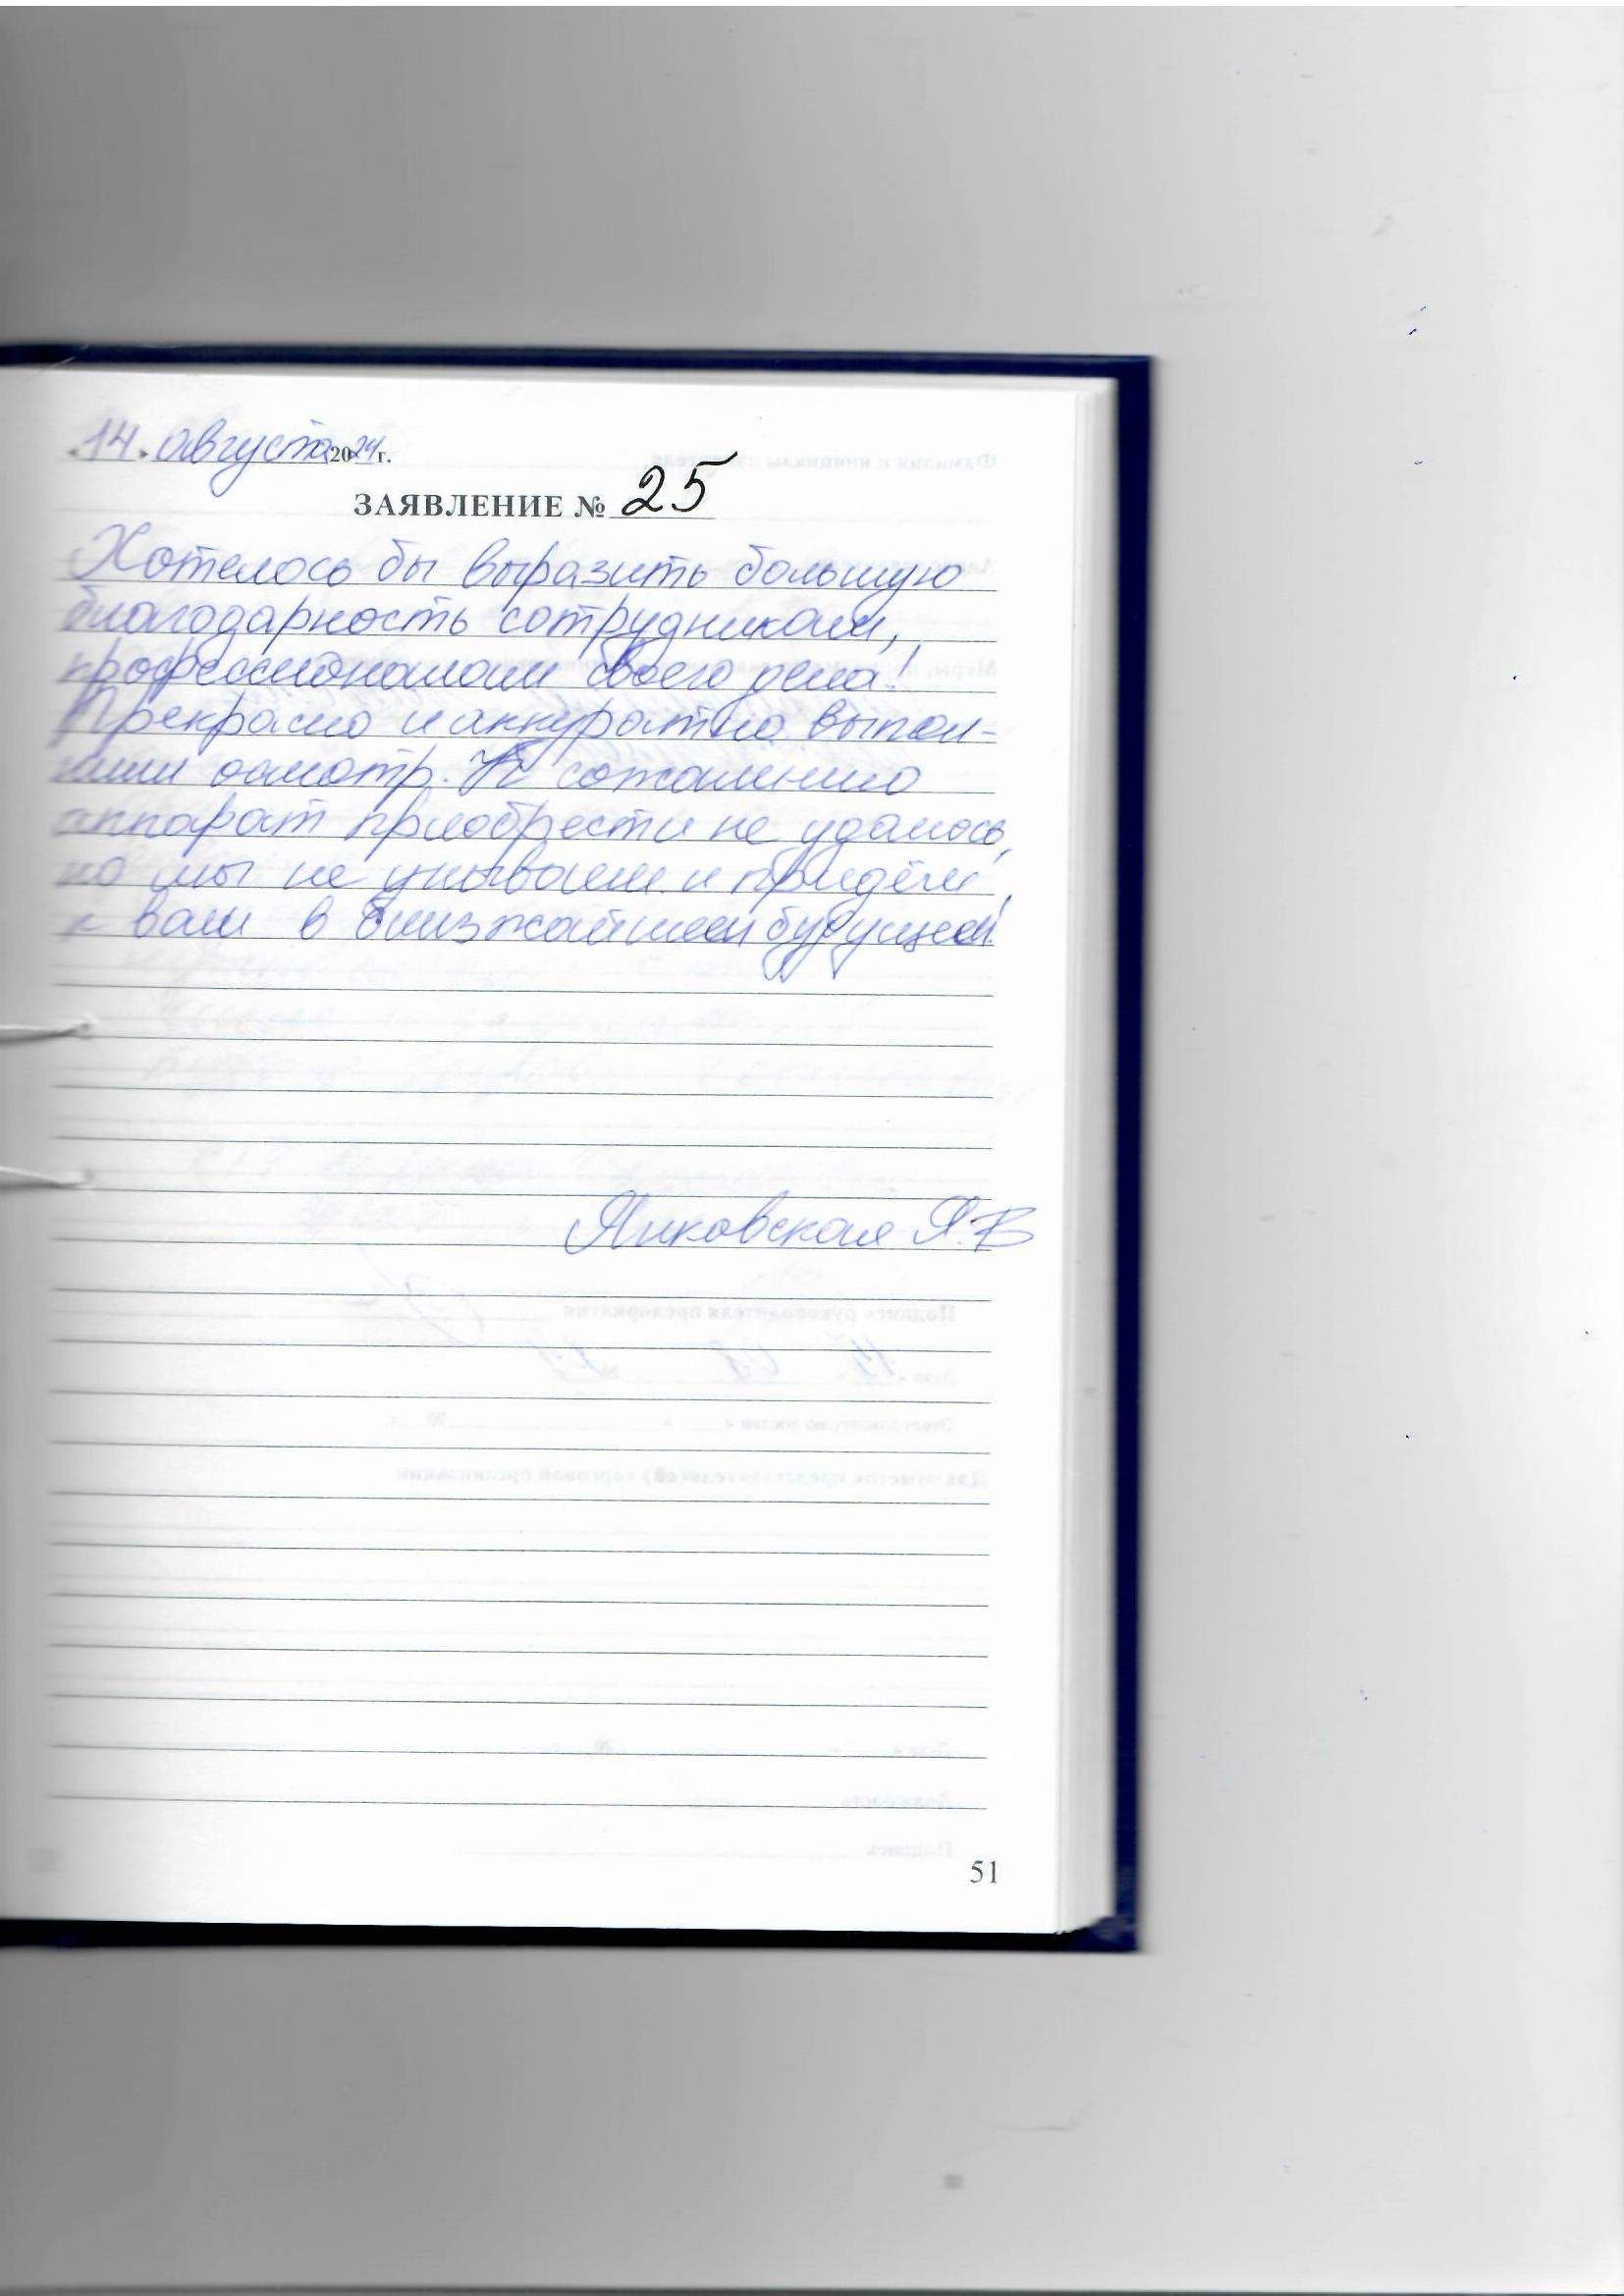 «14» августа 2024 г.
ЗАЯВЛЕНИЕ № 25
Хотелось бы выразить большую
благодарность сотрудникам,
профессионалам своего дела!
Прекрасно и аккуратно выпол-
нили осмотр. К сожалению
аппарат приобрести не удалось,
но мы не унываем и придём,
к вам в ближайшем будущем.
Янковская Я.В
51